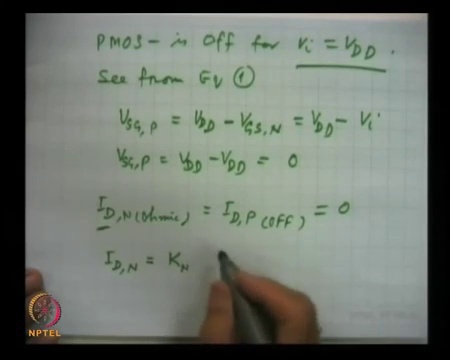 PMOS - is Off for Vi = VDD.
See from EV ①
VSG,P = VDD - VGS,N = VDD - Vi
VSG,P = VDD - VDD = 0
ID,N (ohmic) = ID,P (OFF) = 0
ID,N = KN
NPTEL